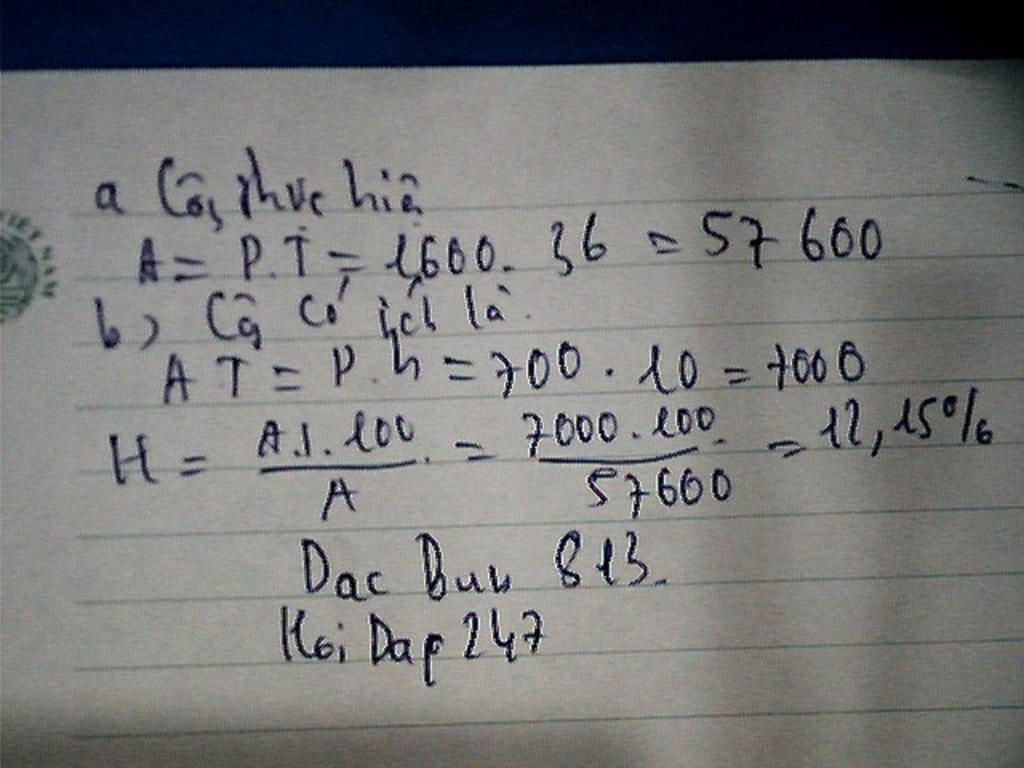 a Công thực hiện
A = P.T = 1600. 36 = 57 600
b) Công có ích là:
A T = P.h = 700 . 10 = 7000
H = A.1.100 / A = 7000.100 / 57600 = 12,15%
Dac Buu 813.
Hoi Dap 247
VIET NAM